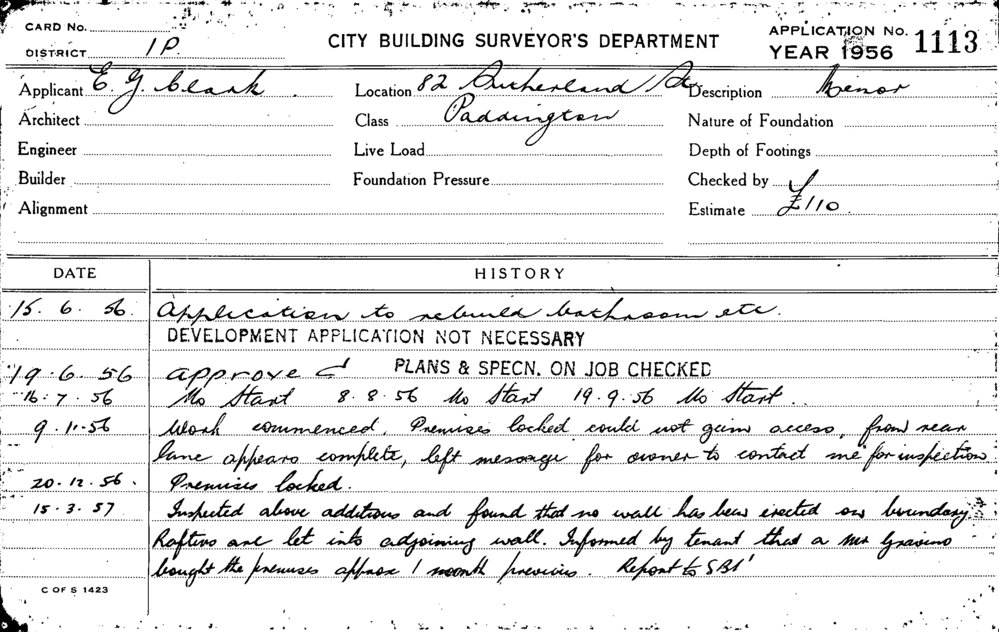 CARD No.
DISTRICT 1P
CITY BUILDING SURVEYOR'S DEPARTMENT
APPLICATION No. 1113
YEAR 1956
Applicant E. G. Clark
Location 82 Sutherland St
Description Minor
Architect
Class Paddington
Nature of Foundation
Engineer
Live Load
Depth of Footings
Builder
Foundation Pressure
Checked by
Alignment
Estimate £110
DATE HISTORY
15. 6. 56. Application to rebuild bathroom etc.
DEVELOPMENT APPLICATION NOT NECESSARY
19. 6. 56 approved PLANS & SPECN. ON JOB CHECKED
16. 7. 56 No Start 8. 8. 56 No Start 19. 9. 56 No Start.
9. 11. 56 Work commenced. Premises locked could not gain access, from rear
lane appears complete, left message for owner to contact me for inspection
20. 12. 56. Premises locked.
15. 3. 57 Inspected above additions and found that no wall has been erected on boundary.
Rafters are let into adjoining wall. Informed by tenant that a Mr
bought the premises approx 1 month previous. Report to SBI
C OF S 1423